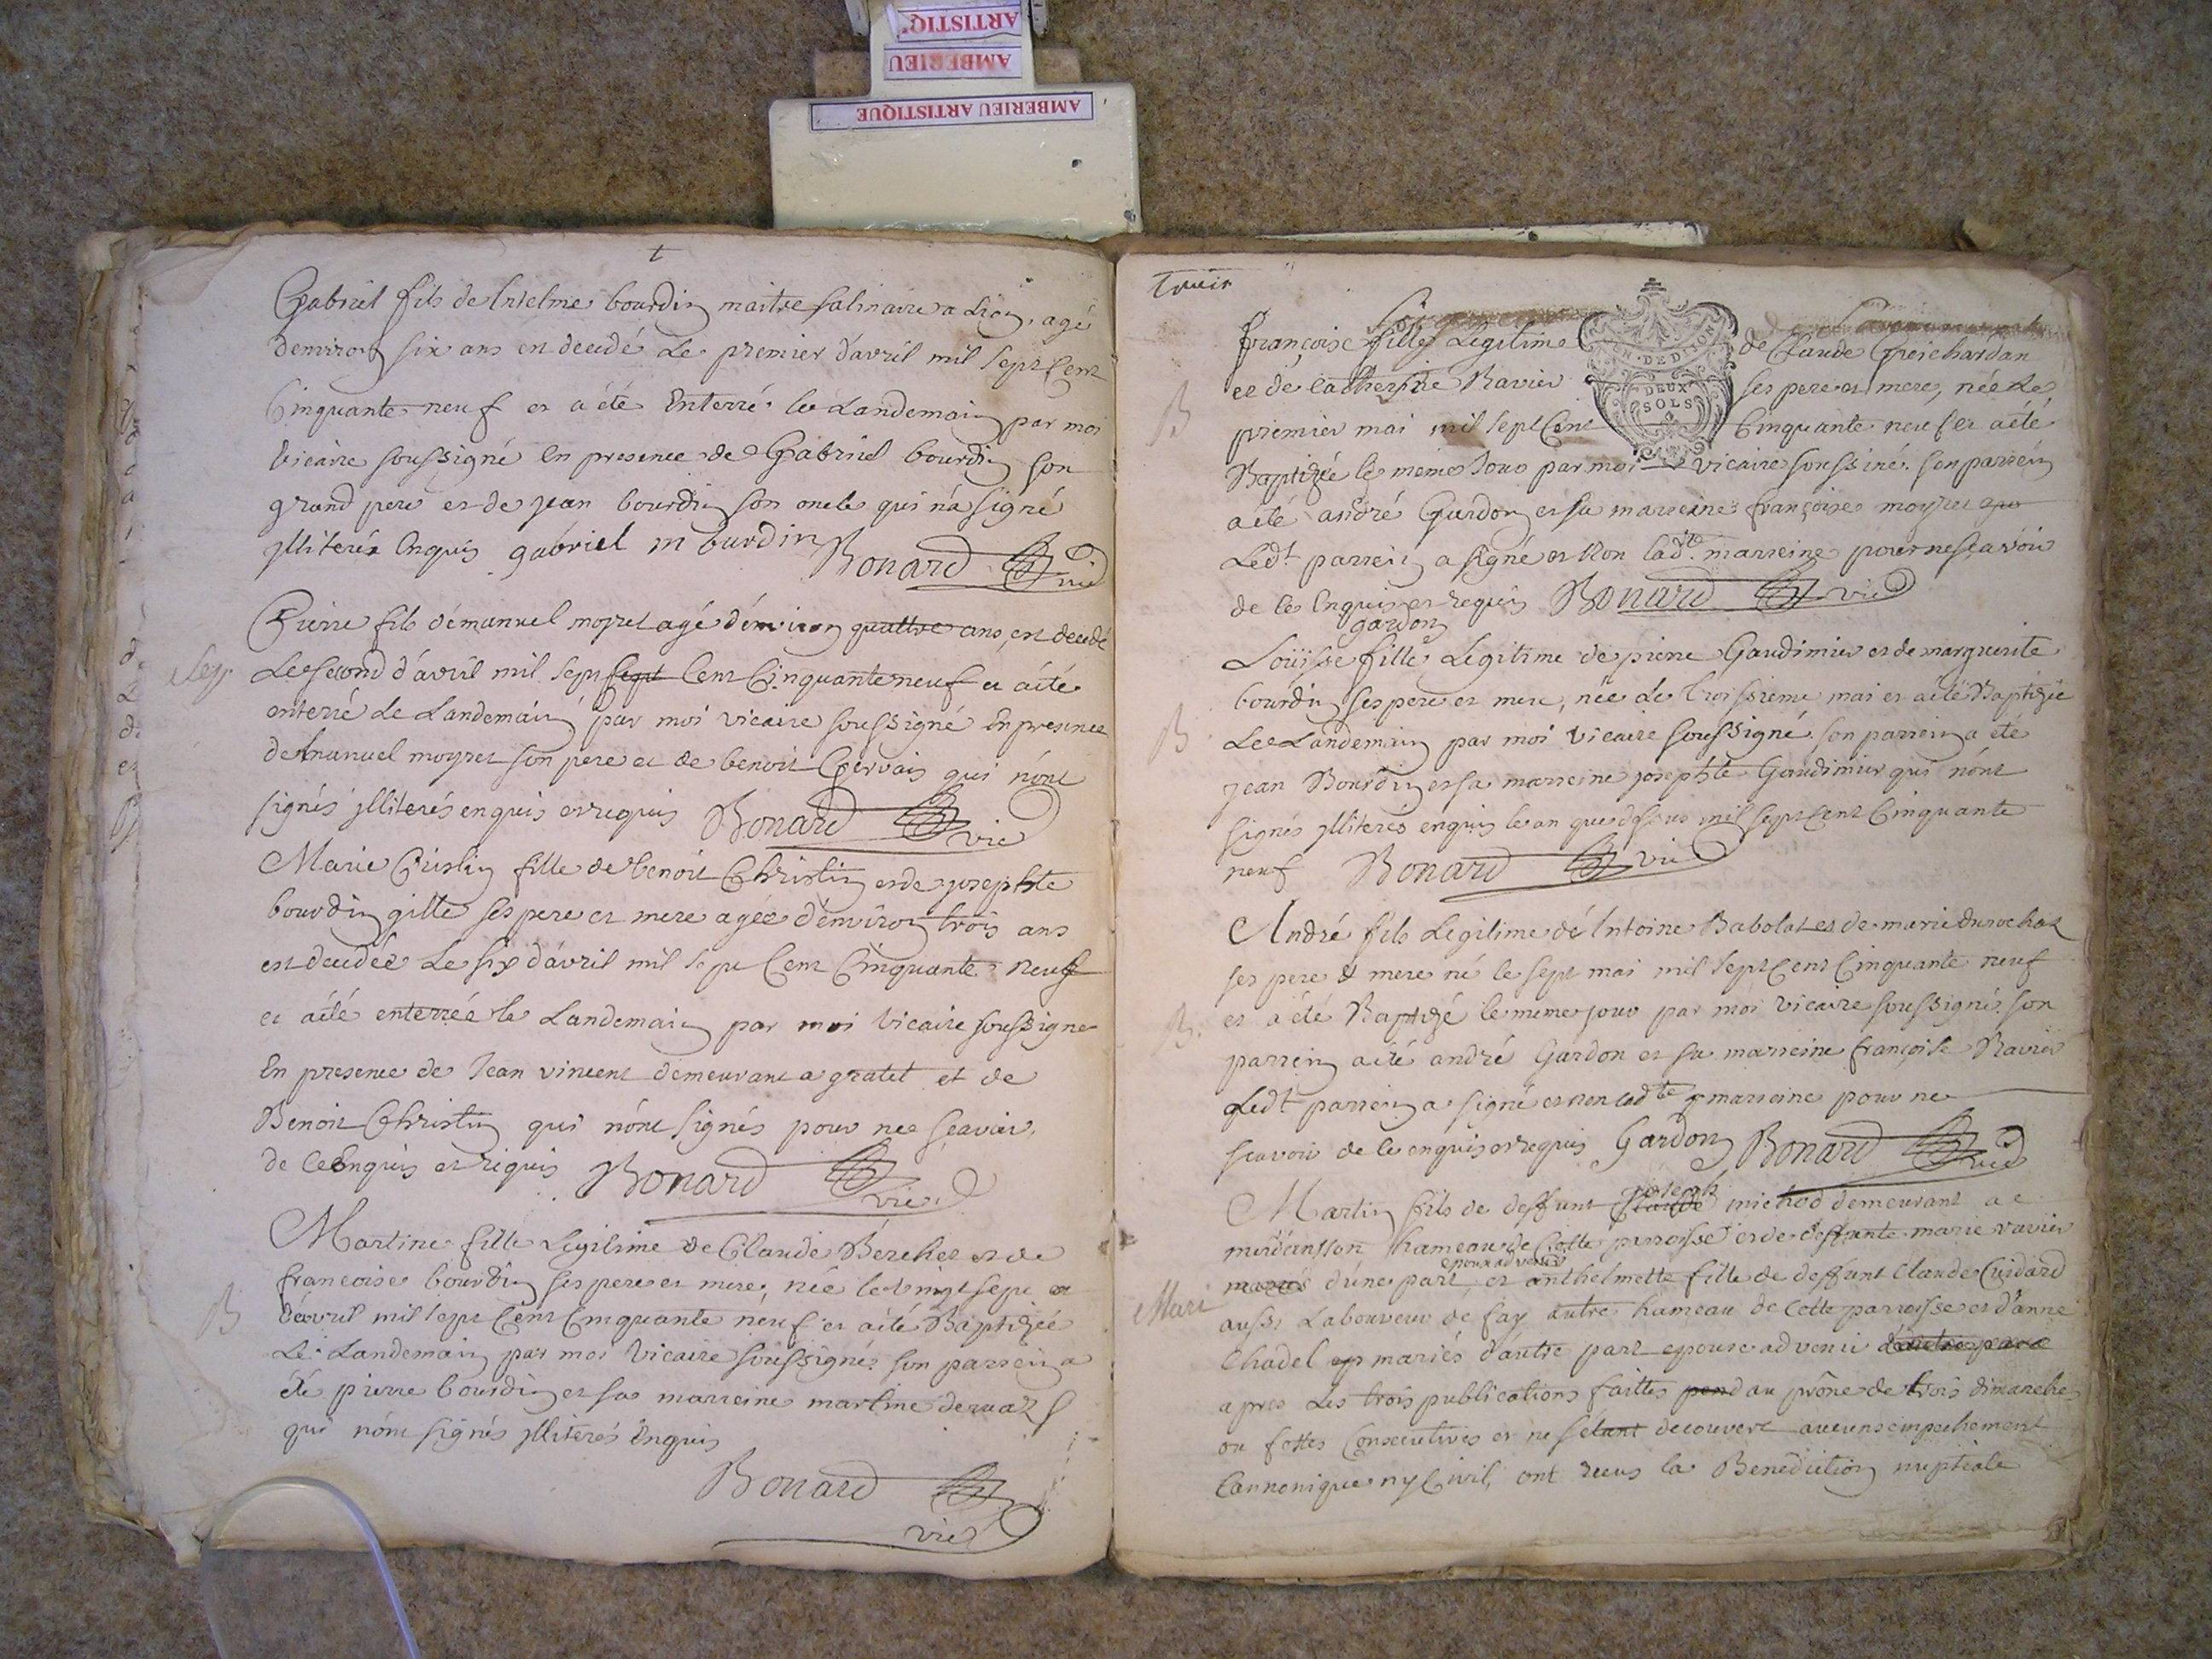 ARTISTIQ
AMBERIEU
AMBERIEU ARTISTIQUE
Gabriel fils de bourdin maitre a agé
d'environ six ans est decedé Le premier d'avril mil sept Cent
Cinquante neuf et a été Enterré le Landemain par moi
Vicaire soussigné En presence de Gabriel bourdin son
grand pere et de jean bourdin son oncle qui n'a signé
jlliteré Enquis gabriel m burdin Bonard vic
Pierre fils d'émanuel moyret agé d'environ quattre ans, est decedé
Sep
Le second d'avril mil sept sept Cent Cinquante neuf et a été
enterré Le Landemain par moi vicaire soussigné En presence
d'Emanuel moyret son pere et de benoit Gervais qui n'ont
signés jlliterés enquis et requis Bonard vic
Marie Cristin fille de benoit Christin et de josephte
bourdin gille ses pere et mere agée d'environ trois ans
est decedée Le six d'avril mil sept Cent Cinquante neuf
et a été enterrée le Landemain par moi Vicaire soussigné
En presence de Jean vincent demeurant a gratet et de
Benoit Christin qui n'ont signés pour ne sçavoir
de ce Enquis et requis Bonard vic
Martine fille Legitime de Claude Berchet et de
B
francoise bourdin ses pere et mere, née le vingt sept
d'avril mil sept Cent Cinquante neuf et a été Baptizée
Le Landemain par moi Vicaire soussigné son parrein a
été pierre bourdin et sa marreine martine
qui n'ont signés jlliterés Enquis
Bonard
vic
françoise fille Legitime de Claude
B
et de Catherine Ravier ses pere et mere, née Le
GEN. DE DIJON
DEUX
SOLS
premier mai mil sept Cent Cinquante neuf et a été
Baptizée le meme Jour par moi vicaire soussiné. son parrein
a été andré Gardon et sa marreine françoise moyret
Ledt parrein a signé et non ladte marreine pour ne sçavoir
de ce Enquis et requis Bonard vic
gardon
Loüisse fille Legitime de pierre Gaudimier et de marguerite
B
bourdin ses pere et mere, née Le troissieme mai et a été Baptizée
Le Landemain par moi Vicaire soussigné. son parrein a été
jean Bourdin et sa marreine josephte Gaudimier qui n'ont
signés jlliterés enquis le an que dessus mil sept Cent Cinquante
neuf Bonard vic
André fils Legitime d'Antoine Babolat et de marie durochat
ses pere & mere né le sept mai mil sept Cent Cinquante neuf
B.
et a été Baptizé le meme jour par moi Vicaire soussigné. son
parrein a été andré Gardon et sa marreine françoise Ravier
Ledt parrein a signé et non ladte marreine pour ne
scavoir de ce enquis et requis Gardon Bonard vic
joseph
Martin fils de deffunt Claude michod demeurant a
hameau de Cette parroisse et de deffunte marie ravier
epoux advenir
mariés d'une part, et anthelmette fille de deffunt Claude Cuidard
Mari
aussi Laboureur de fay autre hameau de Cette parroisse et d'anne
Chadel mariés d'autre part epouse advenir d'autre part
apres Les trois publications faittes pend au prône de trois dimanches
ou fettes Consecutives et ne s'étant decouvert aucuns empechement
Cannonique ny Civil, ont receus la Benediction nuptiale